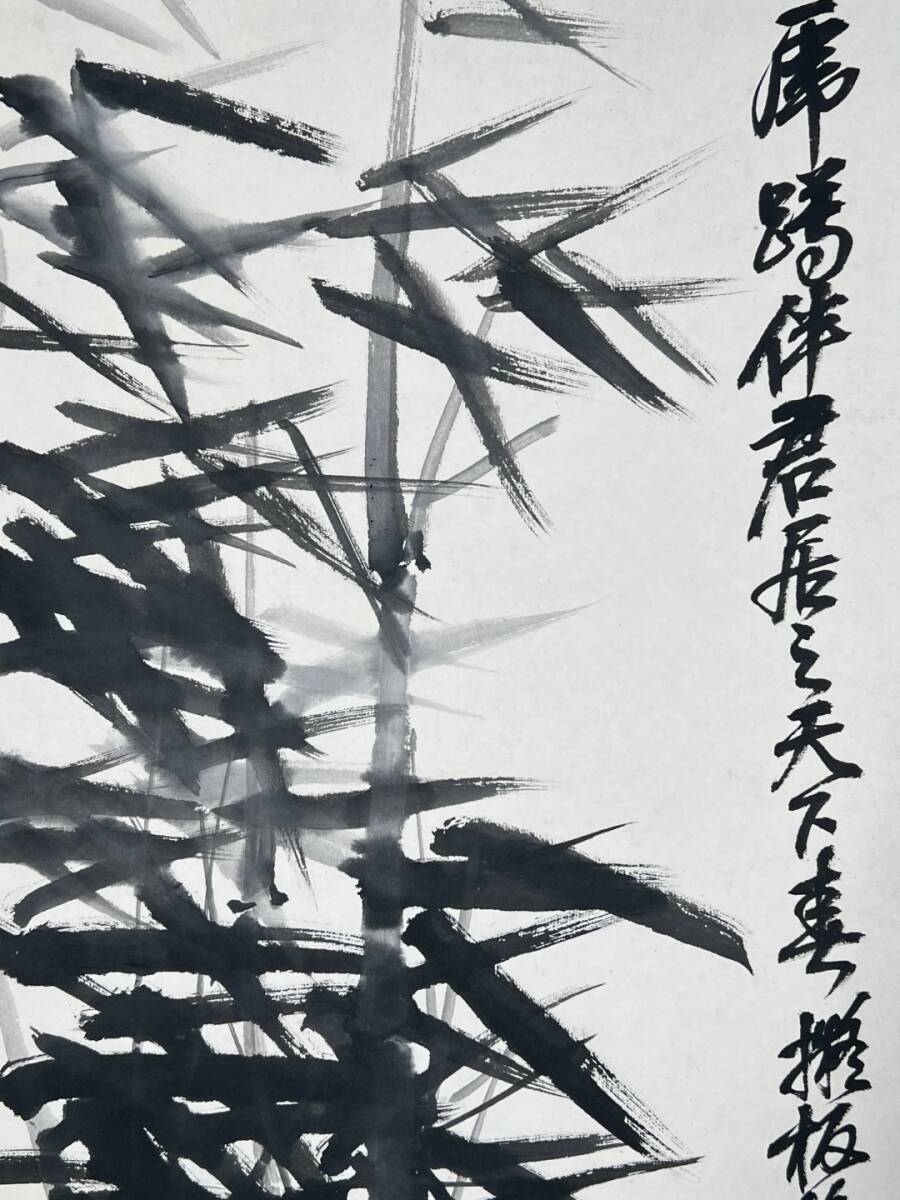 伴君居之天下春擬板